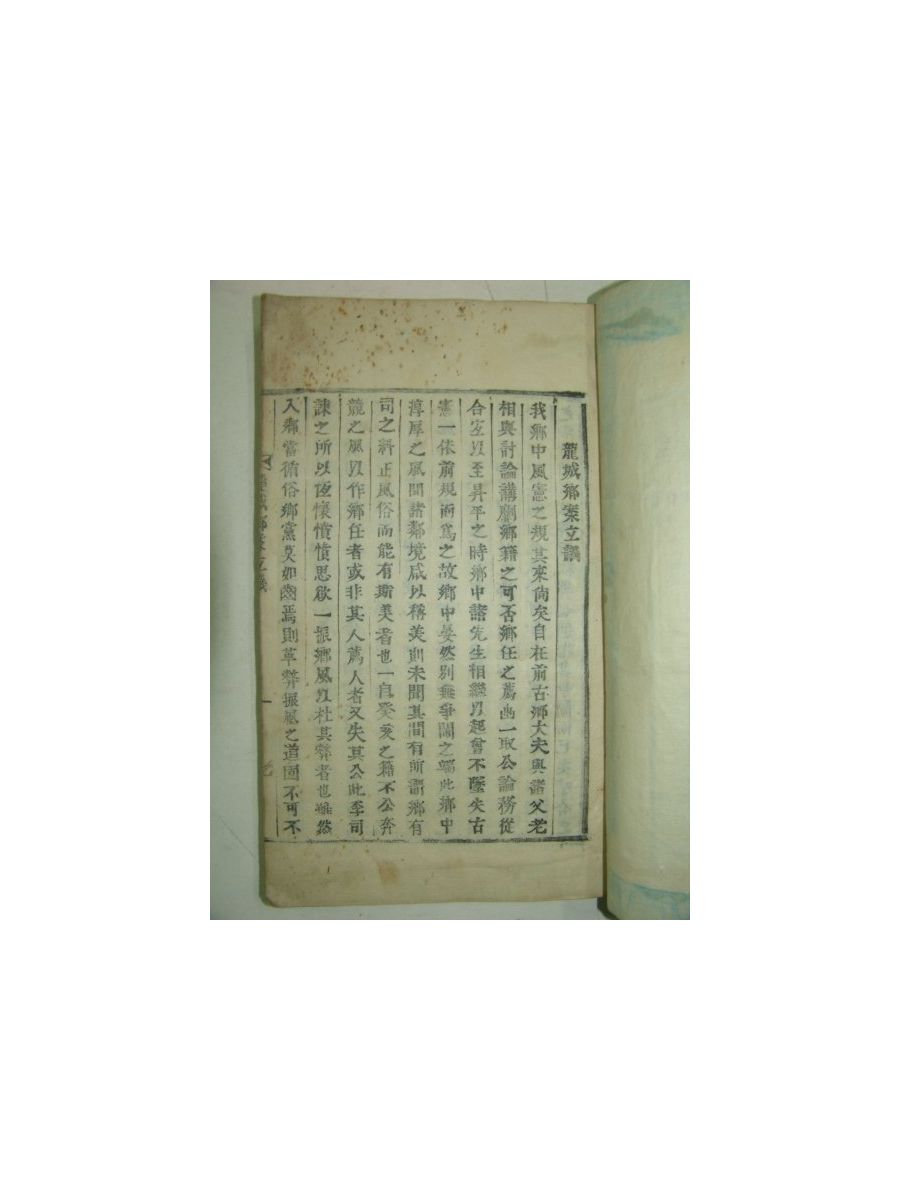 龍城鄕案立議
我鄕中風憲之規其來尙矣自在前古鄕大夫與諸父老
相與討論講劘鄕籍之可否鄕任之薦出一取公論務從
合宜以至昇平之時鄕中諸先生相繼以起曾不墜失古
憲一依前規而爲之故鄕中晏然別無爭鬪之端此鄕中
淳厚之風聞諸鄰境咸以稱美則未聞其間有所謂鄕有
司之糾正風俗而能有斯美者也一自癸亥之籍不公奔
競之風以作鄕任者或非其人薦人者又失其公此李司
諫之所以夜懷憤憤思欲一振鄕風以杜其弊者也雖然
入鄕當循俗鄕黨莫如齒焉則革弊振風之道固不可不
龍城鄕案立議 一